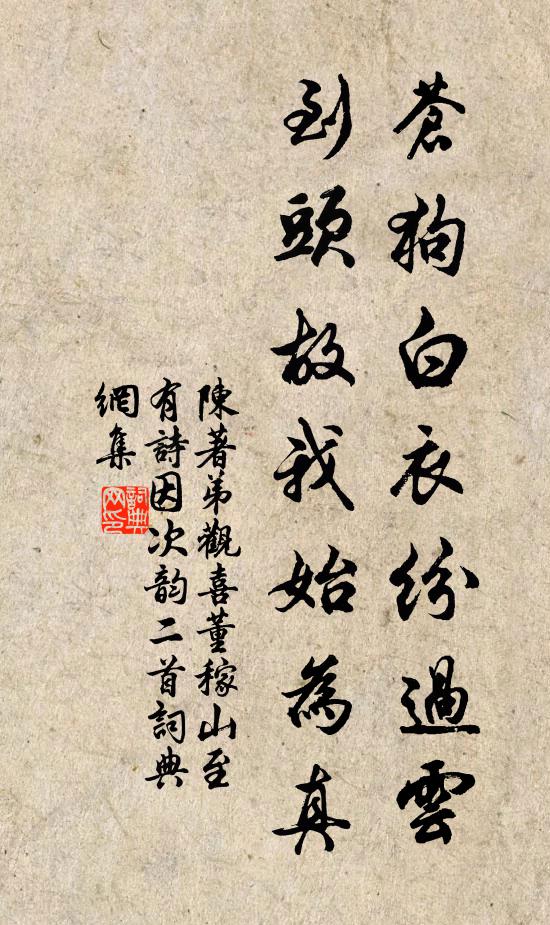 蒼狗白衣紛過雲
到頭故我始為真
陳著弟觀喜董稼山至
有詩因次韵二首詞典
網集
詞典
网印